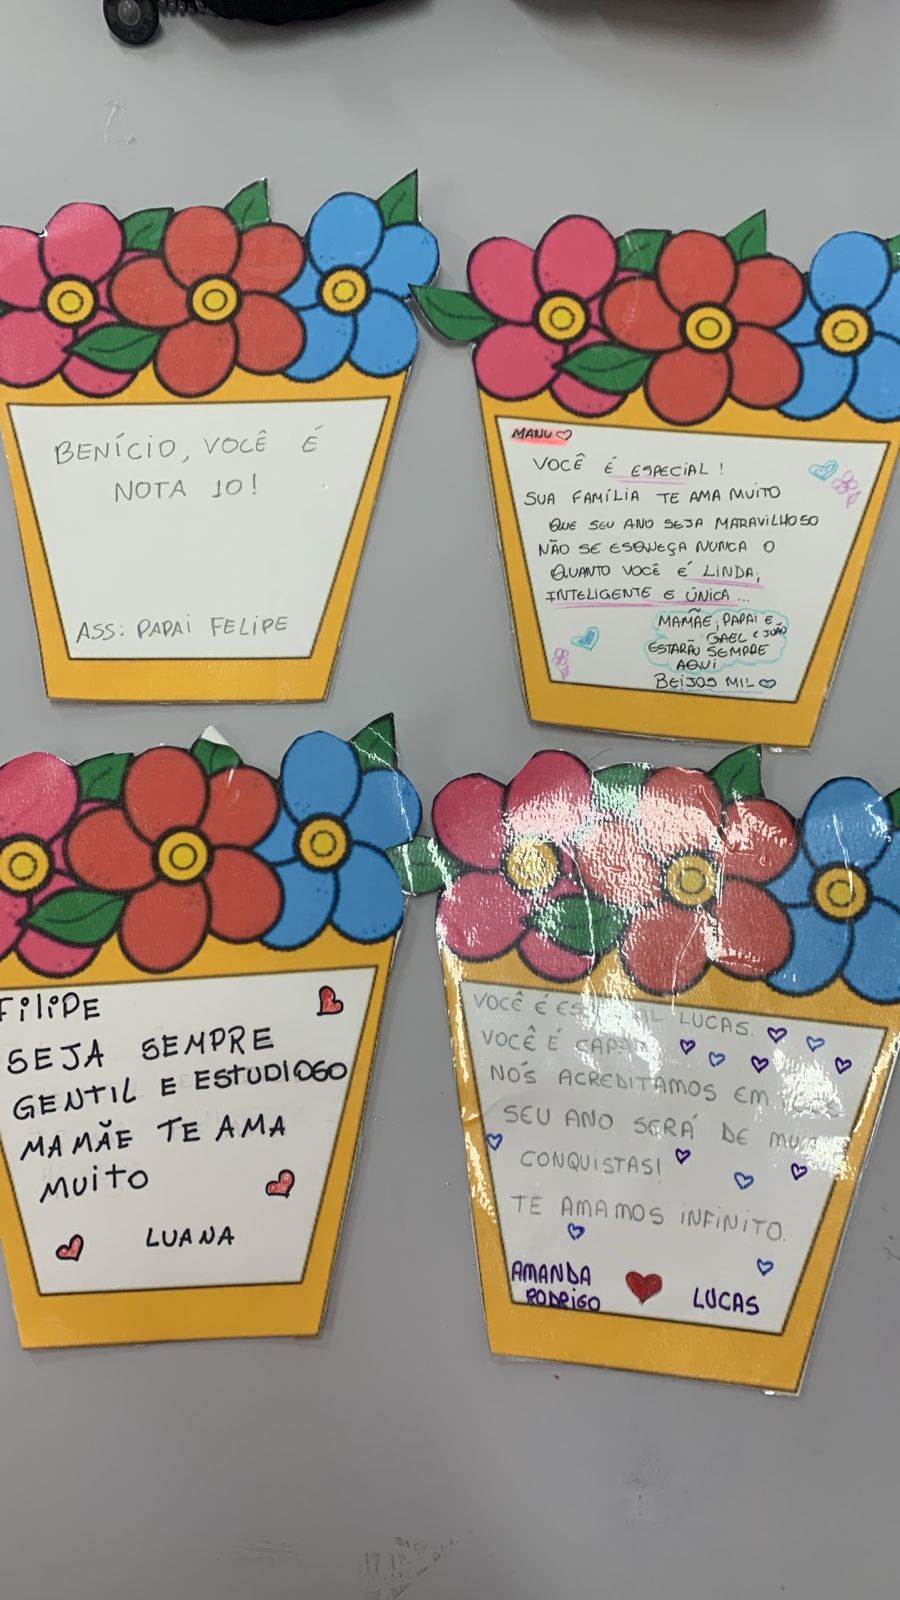 BENÍCIO, VOCÊ É
NOTA 10!
ASS: PAPAI FELIPE
MANU
VOCÊ É ESPECIAL!
SUA FAMÍLIA TE AMA MUITO
QUE SEU ANO SEJA MARAVILHOSO
NÃO SE ESQUEÇA NUNCA O
QUANTO VOCÊ É LINDA,
INTELIGENTE E ÚNICA...
MAMÃE, PAPAI E
GAEL E JOÃO
ESTARÃO SEMPRE
AQUI
BEIJOS MIL
FILIPE
SEJA SEMPRE
GENTIL E ESTUDIOSO
MAMÃE TE AMA
MUITO
LUANA
VOCÊ É ESPECIAL LUCAS.
VOCÊ É CAPAZ
NÓS ACREDITAMOS EM
SEU ANO SERÁ DE
CONQUISTAS!
TE AMAMOS INFINITO.
AMANDA
RODRIGO
LUCAS